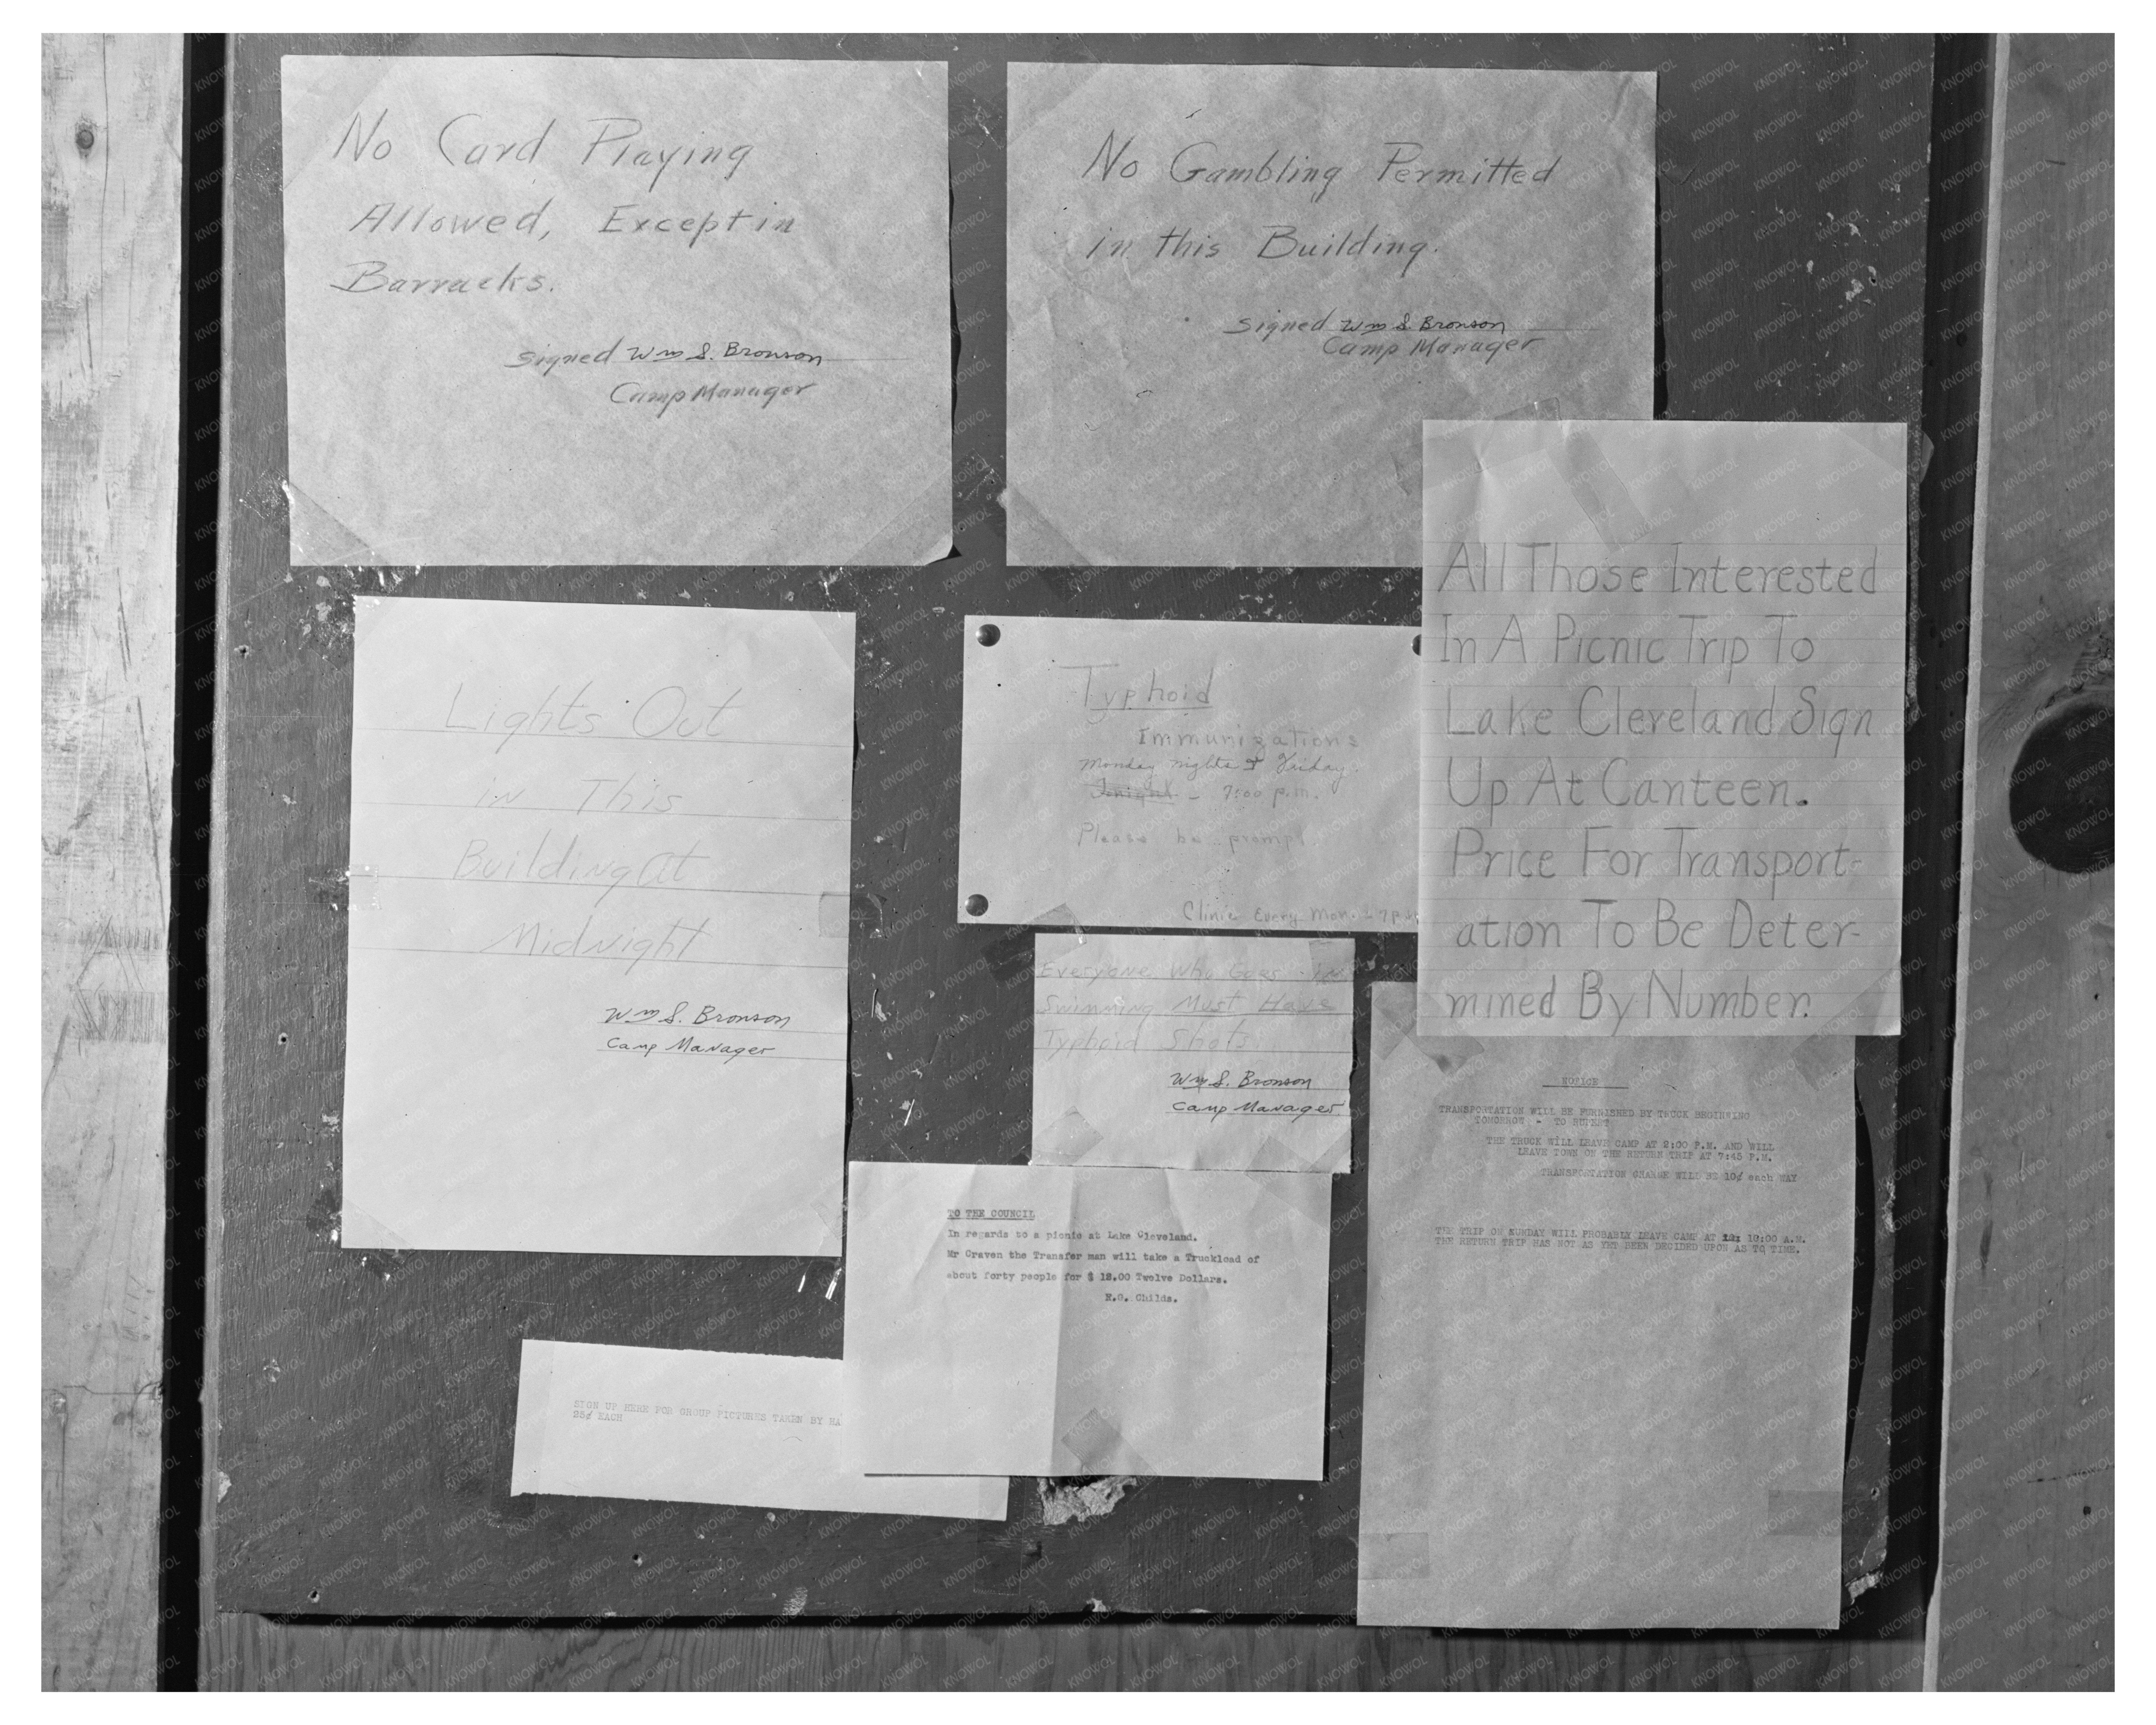 No Card Playing
Allowed, Except in
Barracks.
signed Wm S. Bronson
Camp Manager
No Gambling Permitted
in this Building.
signed Wm S. Bronson
Camp Manager
All Those Interested
In A Picnic Trip To
Lake Cleveland Sign
Up At Canteen.
Price For Transport-
ation To Be Deter-
mined By Number.
Lights Out
in This
Building at
Midnight
Wm S. Bronson
Camp Manager
Typhoid
Immunizations
Monday nights & Friday.
Tonight - 7:00 p.m.
Please be prompt.
Clinic Every Mon. 7 p.m
Everyone Who Goes IN
Swimming Must Have
Typhoid Shots
Wm S. Bronson
Camp Manager
NOTICE
TRANSPORTATION WILL BE FURNISHED BY TRUCK BEGINNING
TOMORROW - TO RUPERT
THE TRUCK WILL LEAVE CAMP AT 2:00 P.M. AND WILL
LEAVE TOWN ON THE RETURN TRIP AT 7:45 P.M.
TRANSPORTATION CHARGE WILL BE 10¢ each WAY
THE TRIP ON SUNDAY WILL PROBABLY LEAVE CAMP AT 10:00 A.M.
THE RETURN TRIP HAS NOT AS YET BEEN DECIDED UPON AS TO TIME.
TO THE COUNCIL
In regards to a picnic at Lake Cleveland.
Mr Craven the Transfer man will take a Truckload of
about forty people for $ 12.00 Twelve Dollars.
Childs.
SIGN UP HERE FOR GROUP PICTURES TAKEN BY
25¢ EACH
KNOWOL